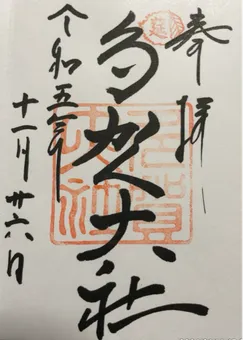 奉拝
多賀大社
多賀
大社
令和五年
十一月廿六日